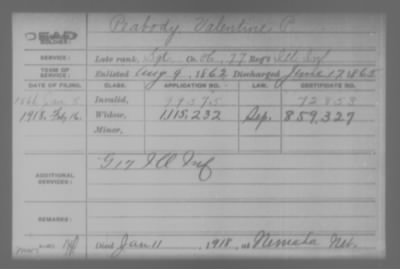 DEAD
SOLDIER: Peabody Valentine P.
SERVICE: Late rank, Sgt Co. H, 77 Reg't Ill. Inf
TERM OF SERVICE: Enlisted Aug 9, 1862 Discharged June 17 1865
DATE OF FILING. CLASS. APPLICATION NO. LAW. CERTIFICATE NO.
1866 Jan 5 Invalid, 72853
1918. Feb. 16. Widow, 1,115,232 Sep. 859,327
Minor,
ADDITIONAL SERVICES: G 17 Ill Inf
REMARKS:
Died Jan 11, 1918, at Nemaha Neb.